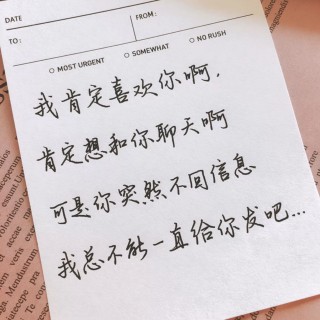 DATE
TO:
FROM:
○ MOST URGENT ○ SOMEWHAT ○ NO RUSH
我肯定喜欢你啊,
肯定想和你聊天啊
可是你突然不回信息
我总不能一直给你发吧...